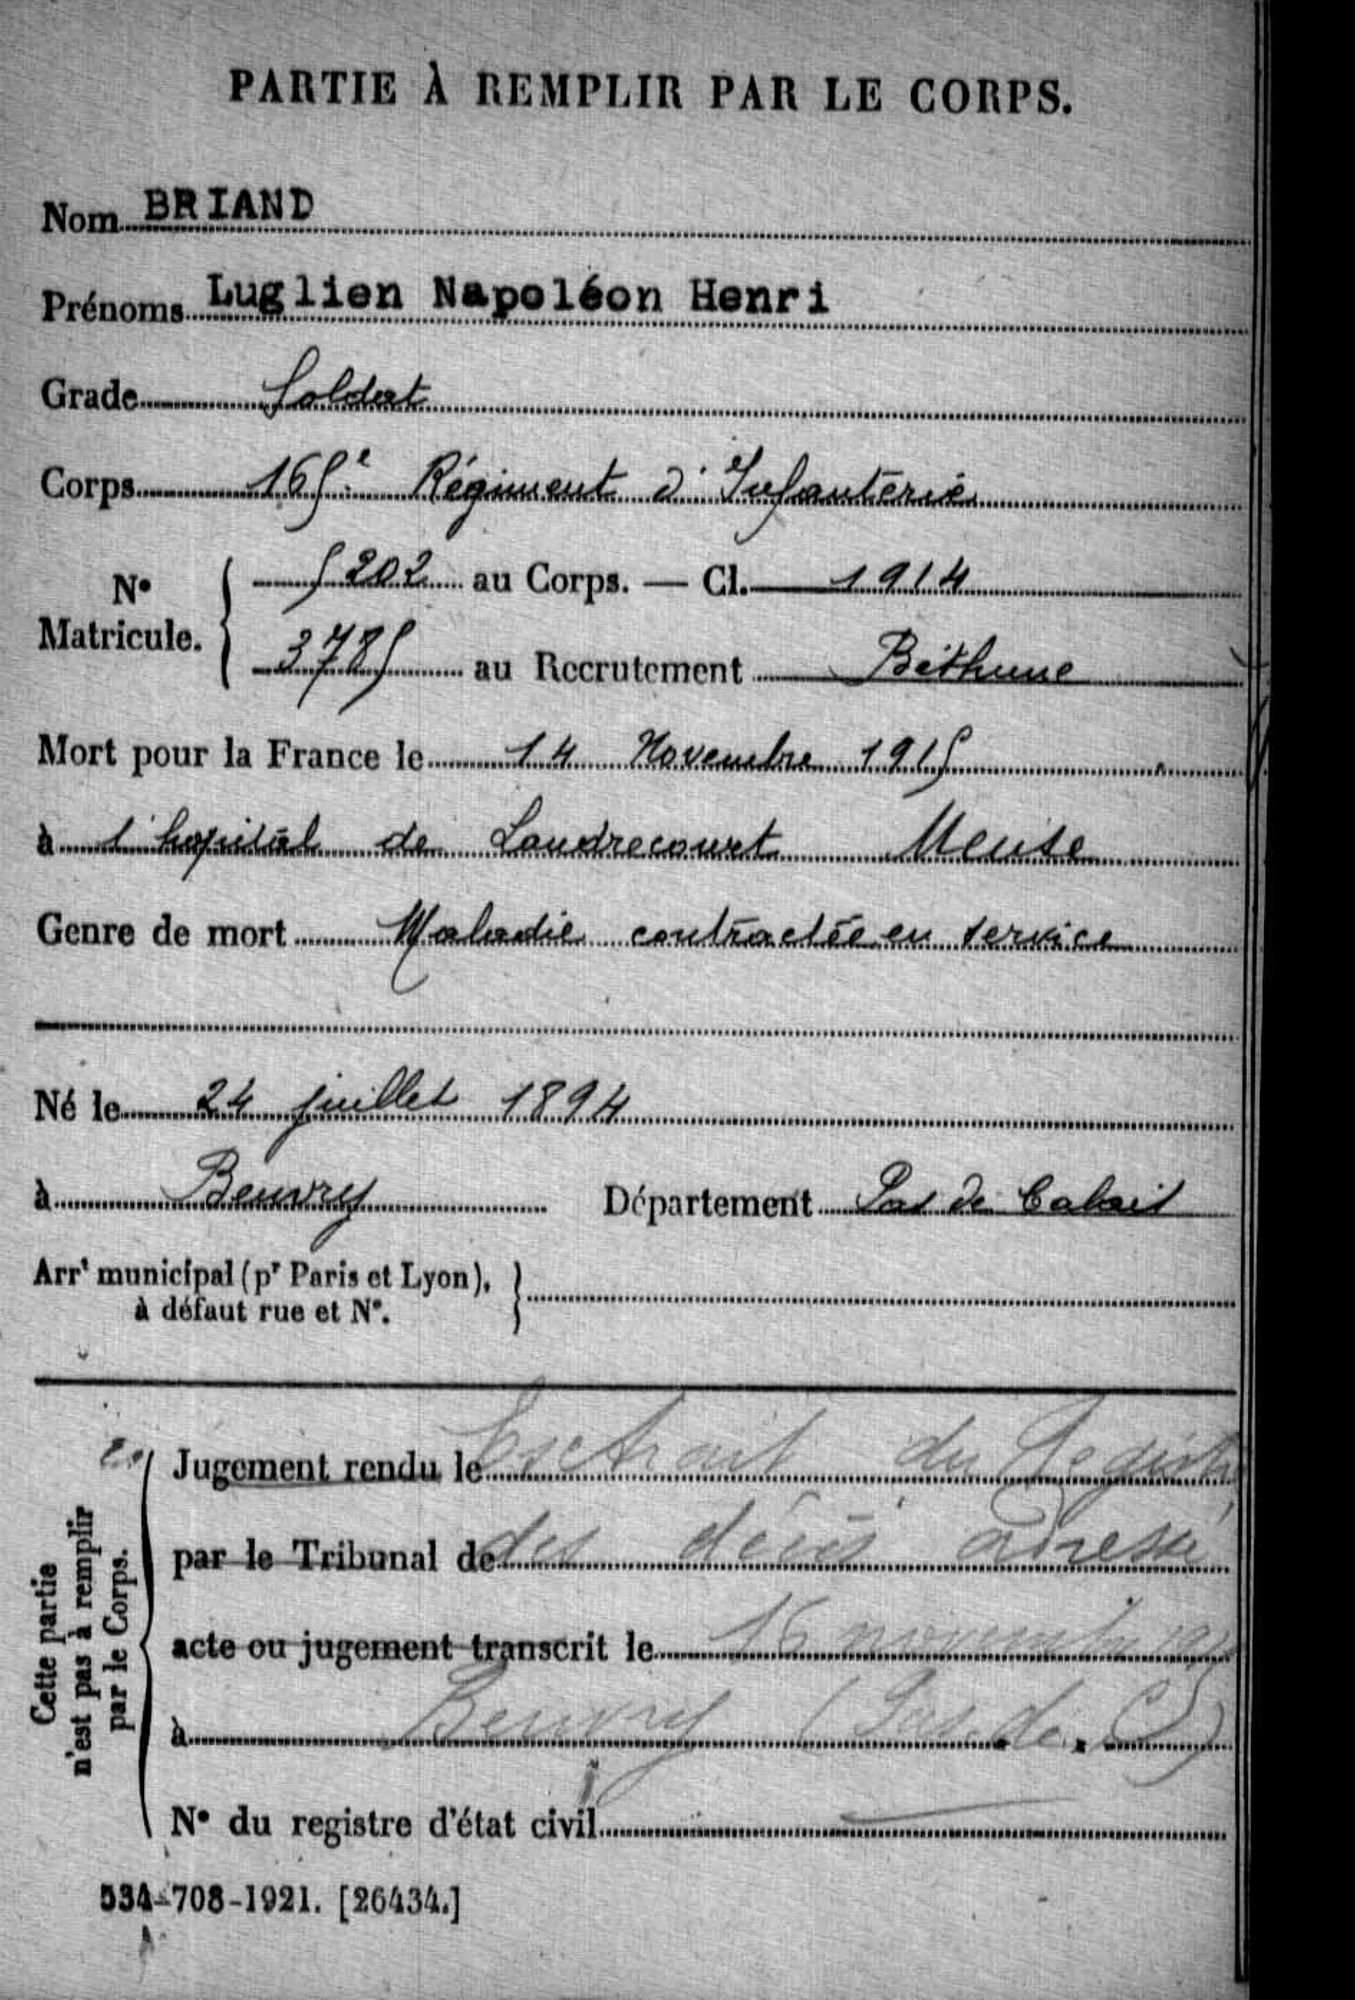 PARTIE À REMPLIR PAR LE CORPS.
Nom BRIAND
Prénoms Luglien Napoléon Henri
Grade Soldat
Corps 165e Régiment d'Infanterie
N° Matricule. { 5202 au Corps. — Cl. 1914
3785 au Recrutement Béthune
Mort pour la France le 14 Novembre 1915
à l'hopital de Landrecourt Meuse
Genre de mort Maladie contractée en service
Né le 24 juillet 1894
à Beuvry Département Pas de Calais
Arrt municipal (pr Paris et Lyon),
à défaut rue et N°.
Cette partie
n'est pas à remplir
par le Corps.
Jugement rendu le Extrait du Registre
par le Tribunal de des décès adressé
acte ou jugement transcrit le 16 novembre
à Beuvry (Pas. de. C)
N° du registre d'état civil
534-708-1921. [26434.]